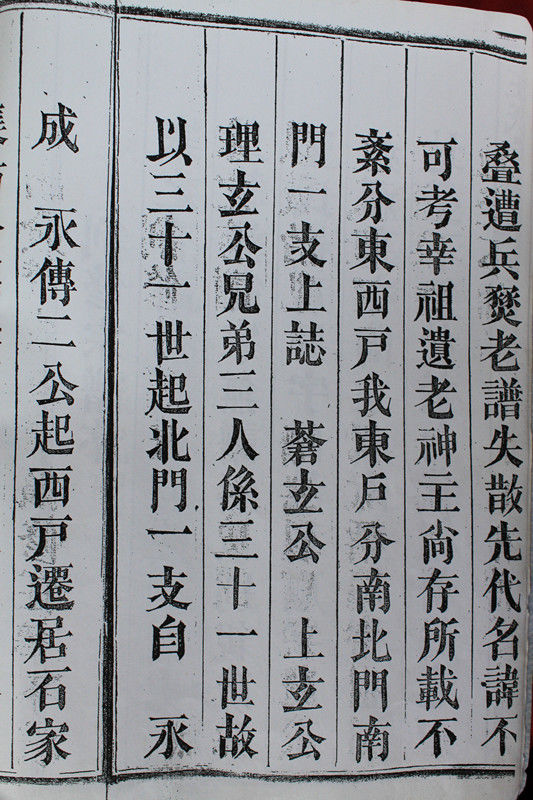 叠遭兵燹老譜失散先代名諱不
可考幸祖遺老神主尙存所載不
紊分東西戶我東戶分南北門南
門一支上誌　蒼玄公　上玄公
理玄公兄弟三人係三十一世故
以三十一世起北門一支自　永
成　永傳二公起西戶遷居石家